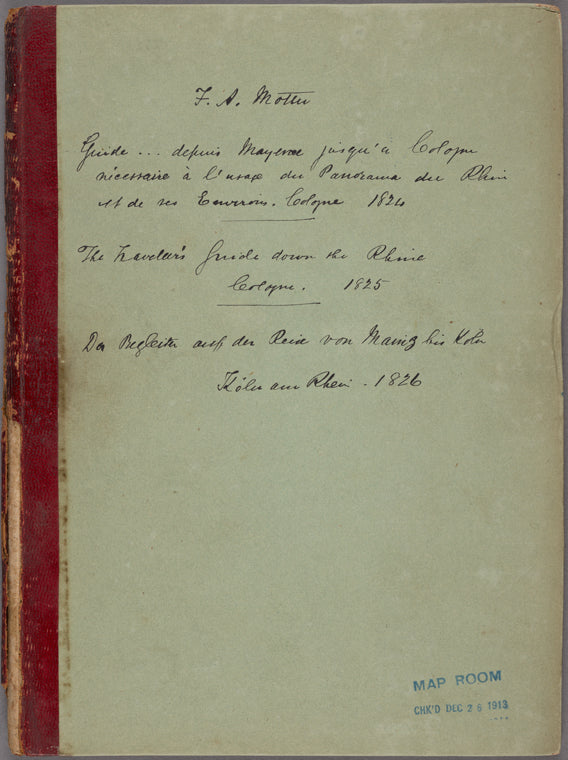 F. A. Mottu
Guide ... depuis Mayence jusqu'à Cologne
nécessaire à l'usage du Panorama du Rhin
et de ses Environs. Cologne 1824
The Traveler's Guide down the Rhine
Cologne. 1825
Der Begleiter auf der Reise von Mainz bis Köln
Köln am Rhein - 1826
MAP ROOM
CHK'D DEC 26 1913